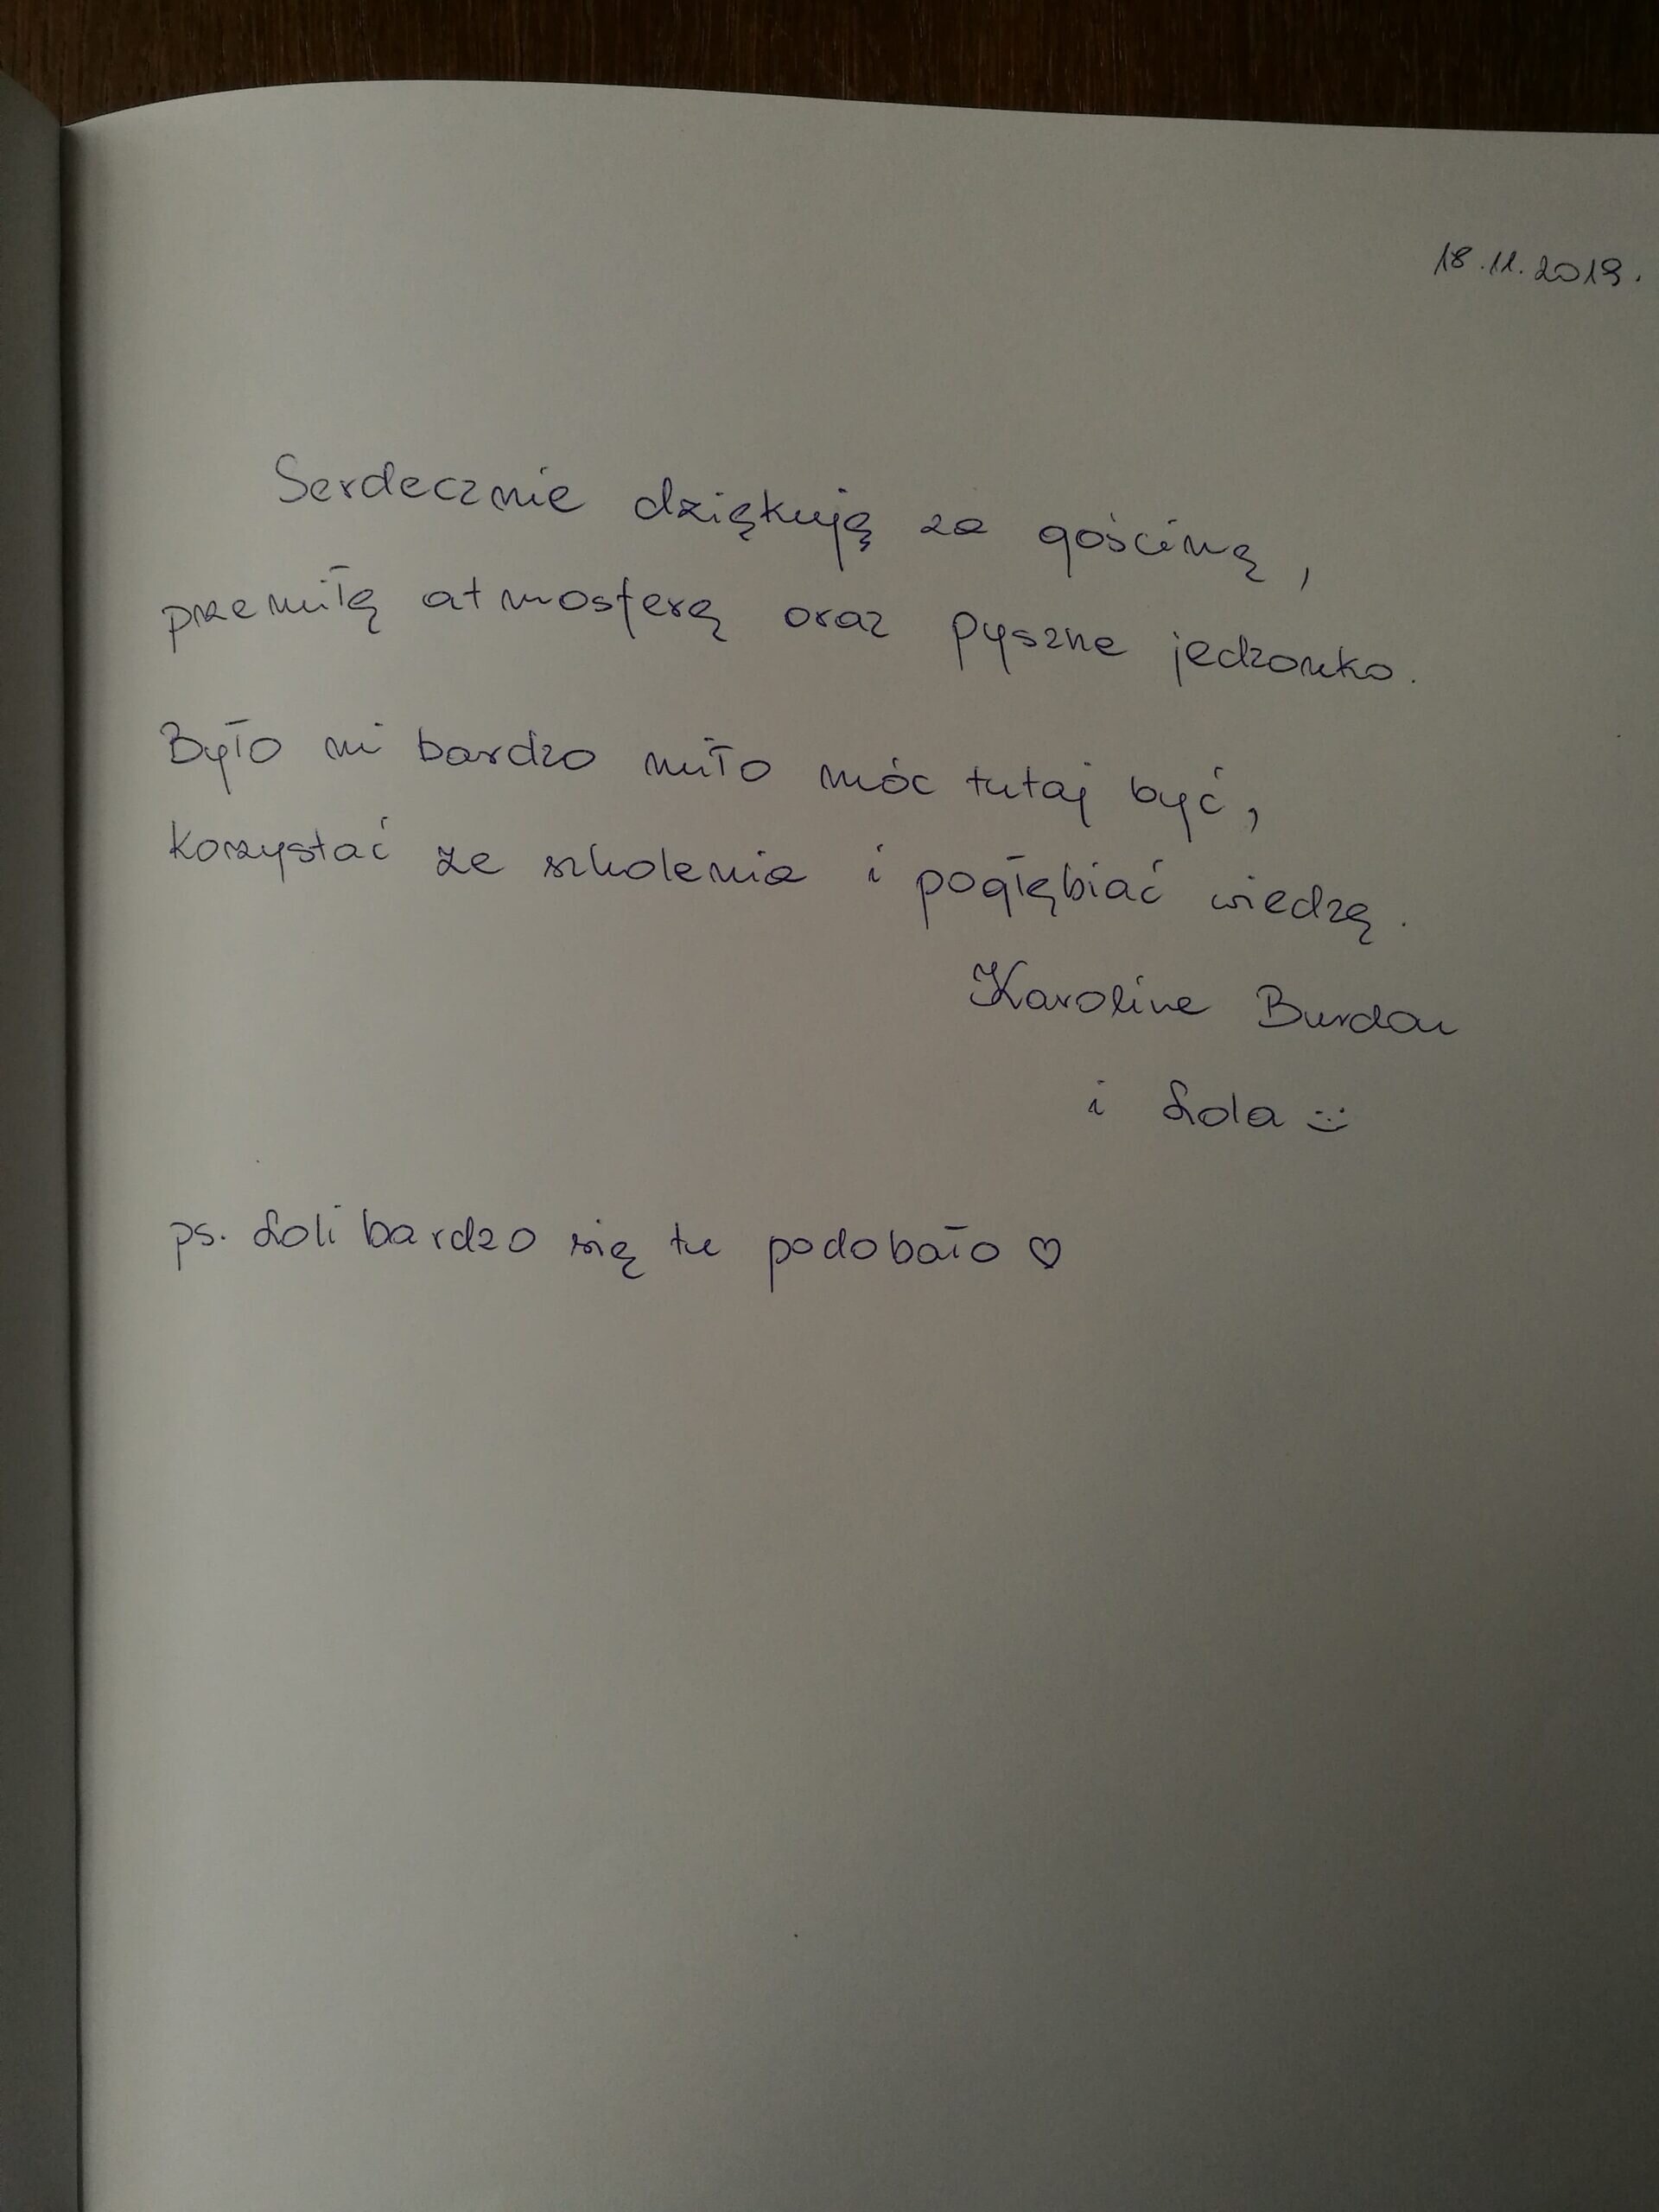 18.11.2019.
Serdecznie dziękuję za gościnę,
przemiłą atmosferę oraz pyszne jedzonko.
Było mi bardzo miło móc tutaj być,
korzystać ze szkolenia i pogłębiać wiedzę.
Karolina Burdan
i Lola :)
ps. Loli bardzo się tu podobało ♡